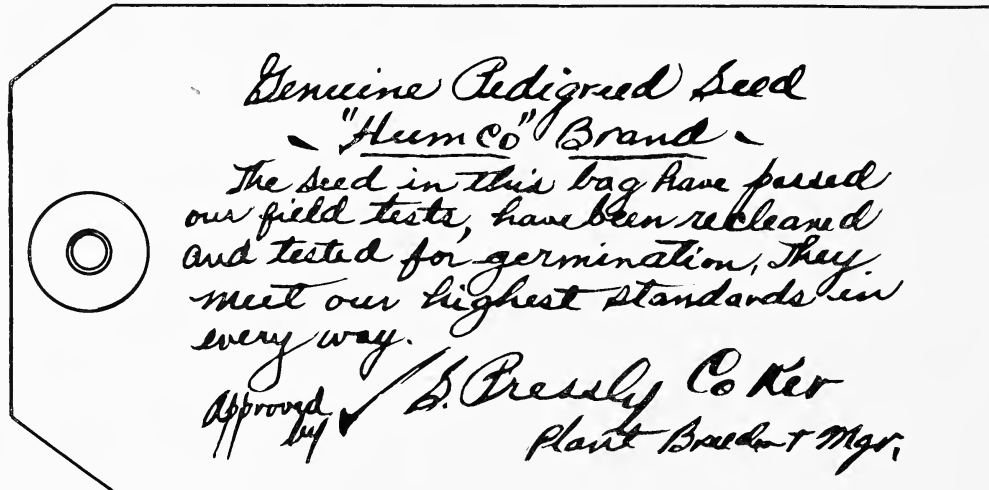 Genuine Pedigreed Seed
- "HumCo" Brand -
The seed in this bag have passed
our field tests, have been recleaned
and tested for germination. They
meet our highest standards in
every way.
Approved
by ✓ S. Pressly Coker
Plant Breeder & Mgr.